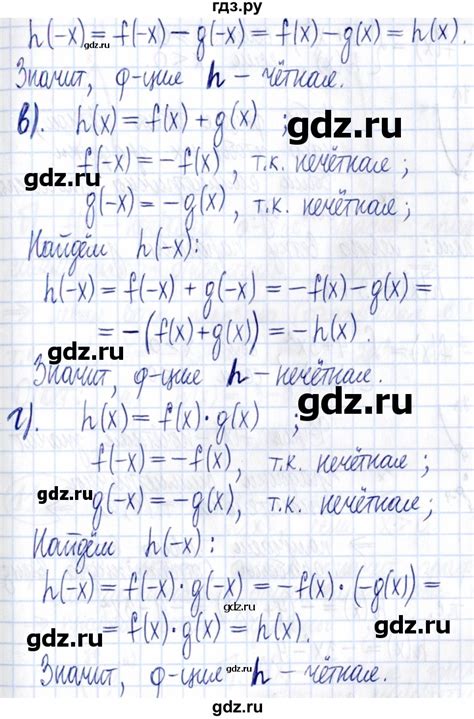 гдз.ру
h(-x) = f(-x) - g(-x) = f(x) - g(x) = h(x).
gdz.ru
Значит, ф-ция h - чётная.
в). h(x) = f(x) + g(x) ;
gdz.ru
gdz.ru
f(-x) = -f(x) , т.к. нечётная ;
gdz.ru
g(-x) = -g(x) , т.к. нечётная ;
Найдём h(-x):
gdz.ru
h(-x) = f(-x) + g(-x) = -f(x) - g(x) =
= -(f(x) + g(x)) = -h(x) .
gdz.ru
Значит, ф-ция h - нечётная.
gdz.ru
г). h(x) = f(x) · g(x) ;
f(-x) = -f(x), т.к. нечётная ;
gdz.ru
g(-x) = -g(x), т.к. нечётная ;
gdz.ru
Найдём h(-x) :
h(-x) = f(-x) · g(-x) = -f(x) · (-g(x)) =
gdz.ru
= f(x) · g(x) = h(x).
gdz.ru
gdz.ru
Значит, ф-ция h - чётная.
gdz.ru
gdz.ru